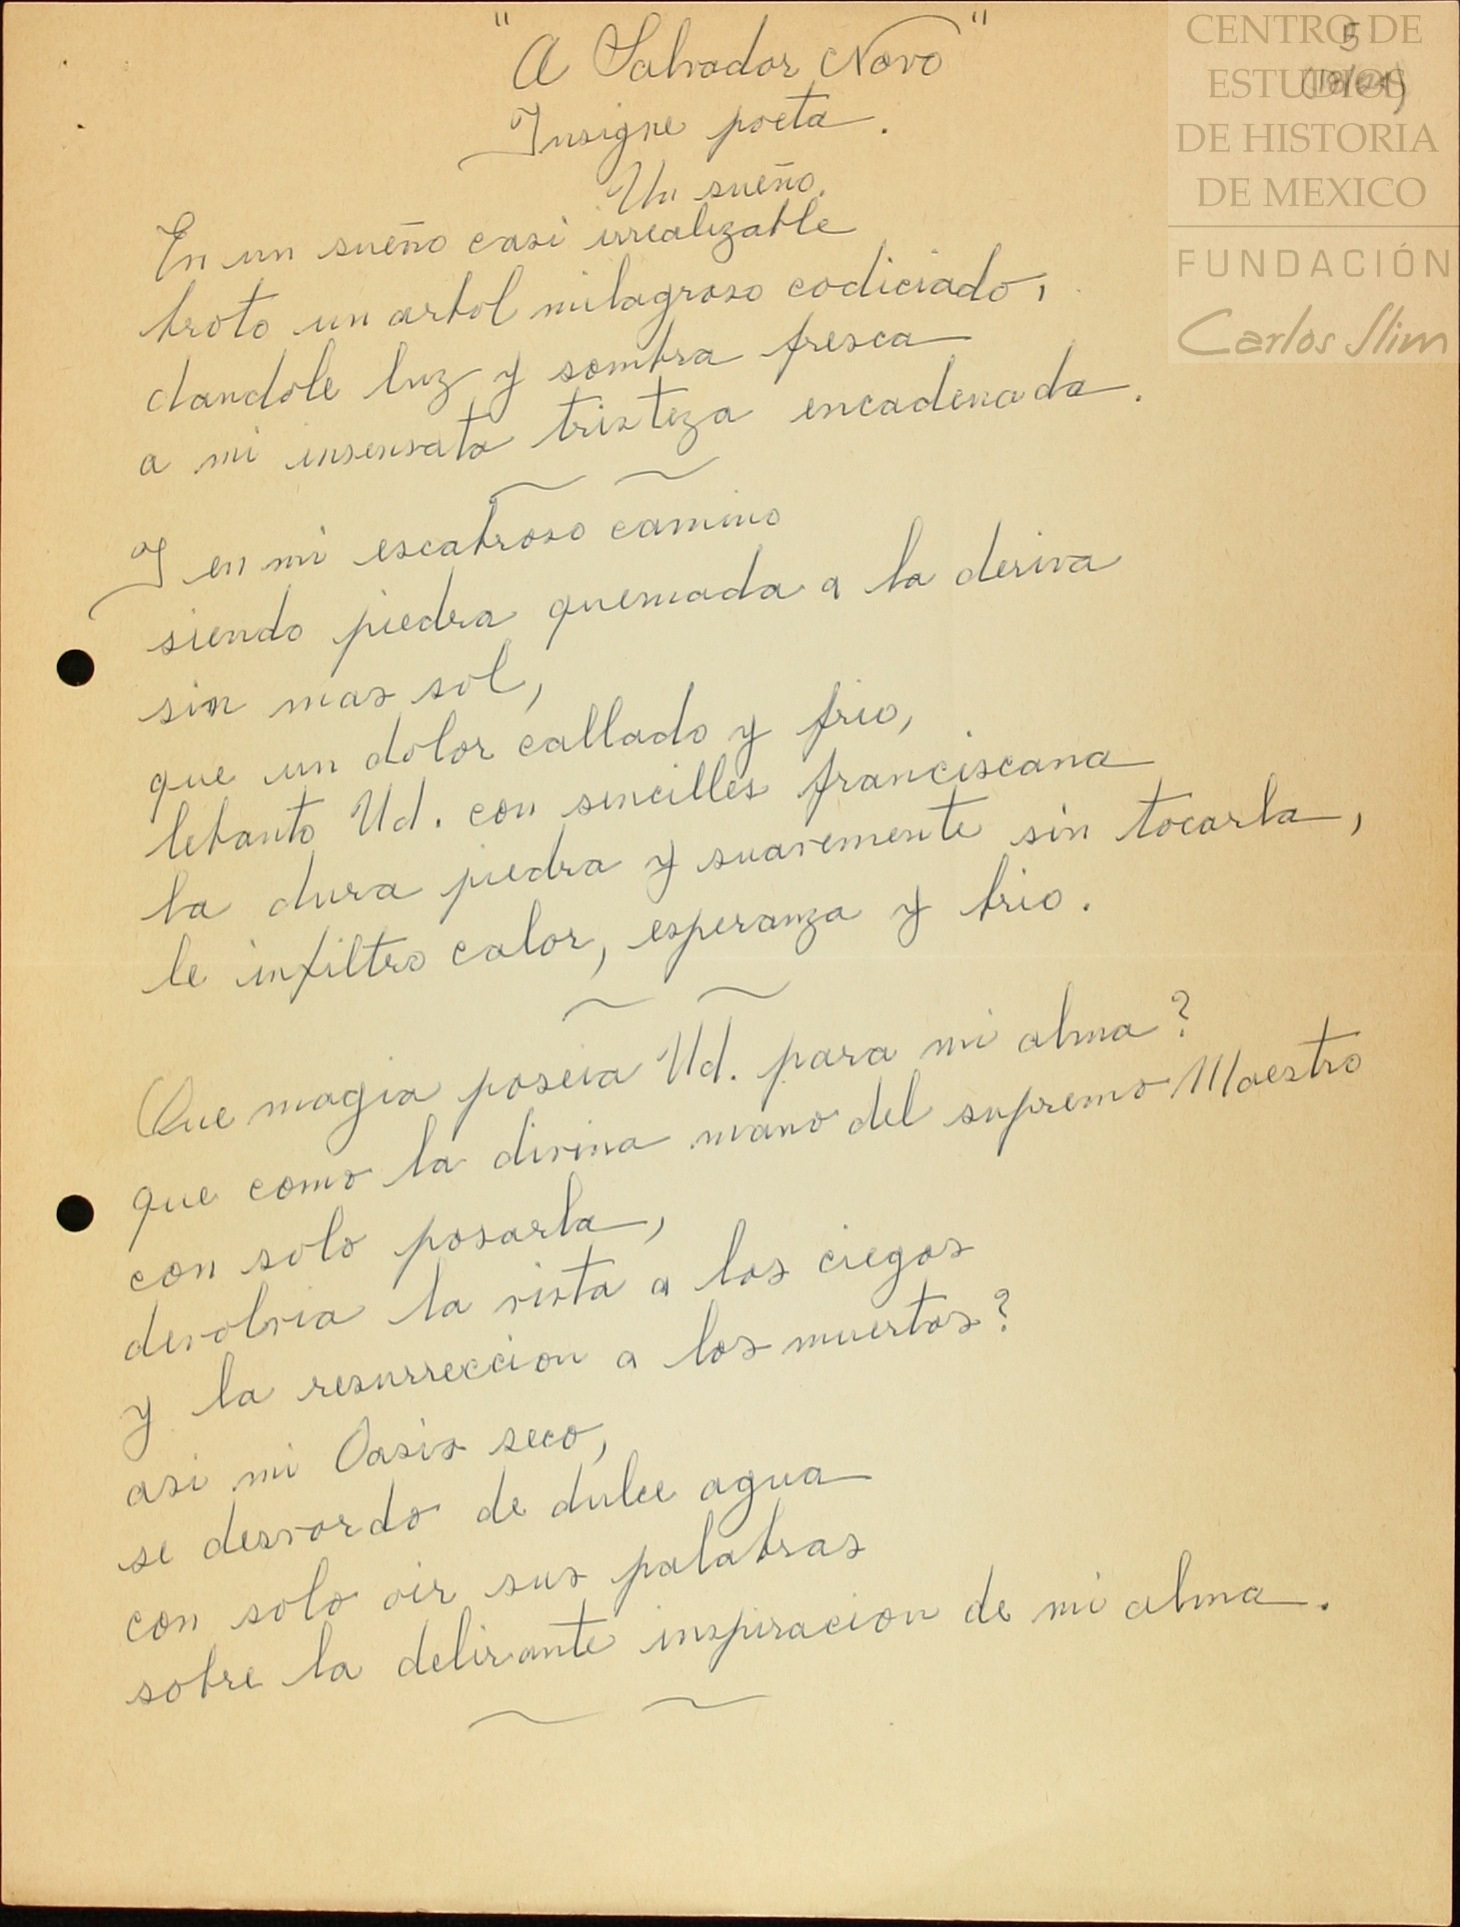 "A Salvador Novo"
Insigne poeta.
Un sueño.
En un sueño casi irrealizable
broto un arbol milagroso codiciado,
dandole luz y sombra fresca
a mi insensata tristeza encadenada.
Y en mi escabroso camino
siendo piedra quemada a la deriva
sin mas sol,
que un dolor callado y frio,
lebanto Ud. con sencilles franciscana
la dura piedra y suavemente sin tocarla,
le infiltro calor, esperanza y brio.
Que magia poseia Ud. para mi alma?
que como la divina mano del supremo Maestro
con solo posarla,
devolvia la vista a los ciegos
y la resurreccion a los muertos?
asi mi Oasis seco,
se desvordo de dulce agua
con solo oir sus palabras
sobre la delirante inspiracion de mi alma.
5
CENTRO DE
ESTUDIOS
DE HISTORIA
DE MEXICO
FUNDACIÓN
Carlos Slim